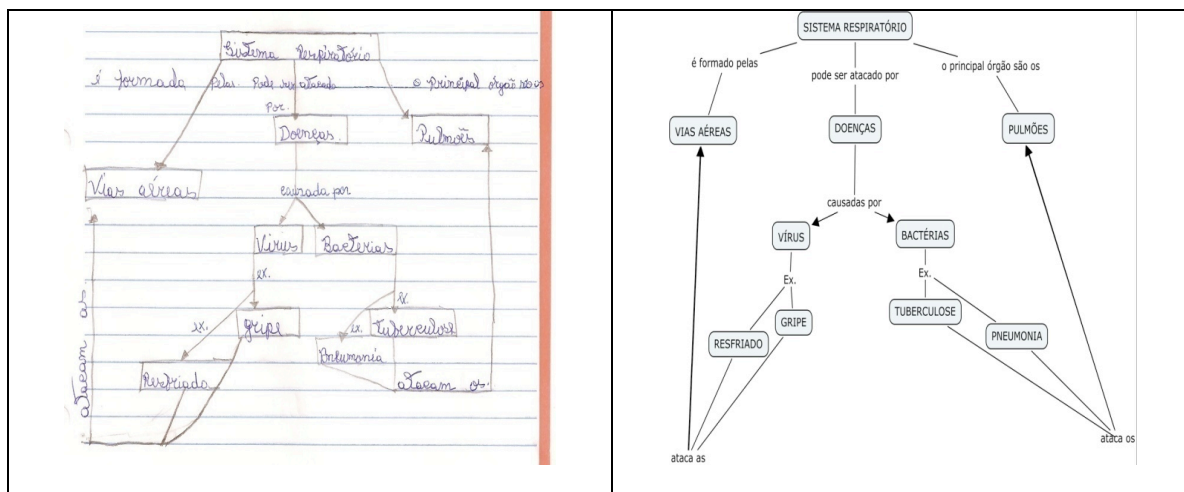 Sistema Respiratório
é formada pelas Pode ser atacado o Principal órgão são os
Por.
Doenças
Pulmões
Vias aéreas
causada por
Vírus
Bactérias
ex.
ex.
ex.
gripe
ex.
tuberculose
Pneumonia
Resfriado
atacam os
atacam as
SISTEMA RESPIRATÓRIO
é formado pelas
o principal órgão são os
pode ser atacado por
VIAS AÉREAS
DOENÇAS
PULMÕES
causadas por
VÍRUS
BACTÉRIAS
Ex.
Ex.
TUBERCULOSE
GRIPE
PNEUMONIA
RESFRIADO
ataca os
ataca as